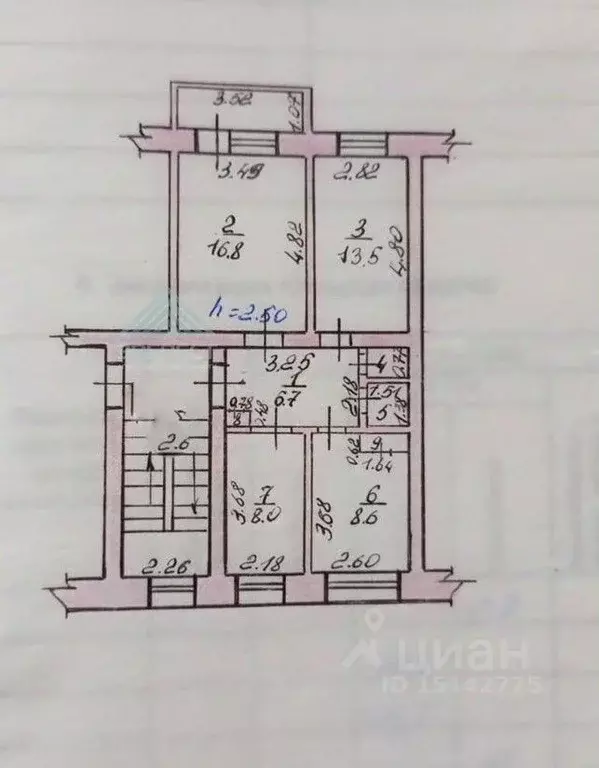 3.52
1.07
3.49
2.82
2
16.8
4.82
3
13.5
4.80
h=2.50
3.25
1
6.7
2.18
4
0.77
1.51
5
1.18
0.78
8
0.48
9
0.62
1.64
2.6
7
8.0
3.68
6
8.6
3.68
2.26
2.18
2.60
циан
ID 15142775